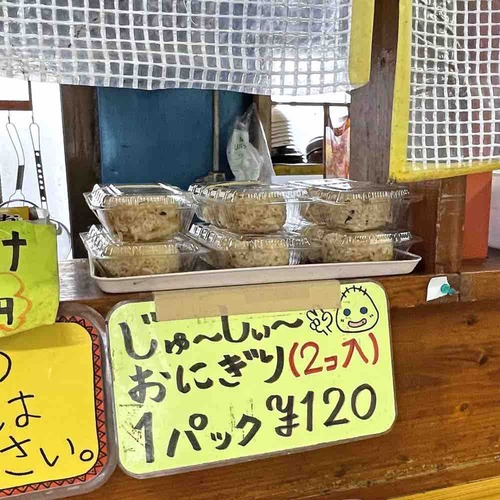 じゅ〜しぃ〜
おにぎり(2コ入)
1パック ¥120
け
円
の
は
さい。